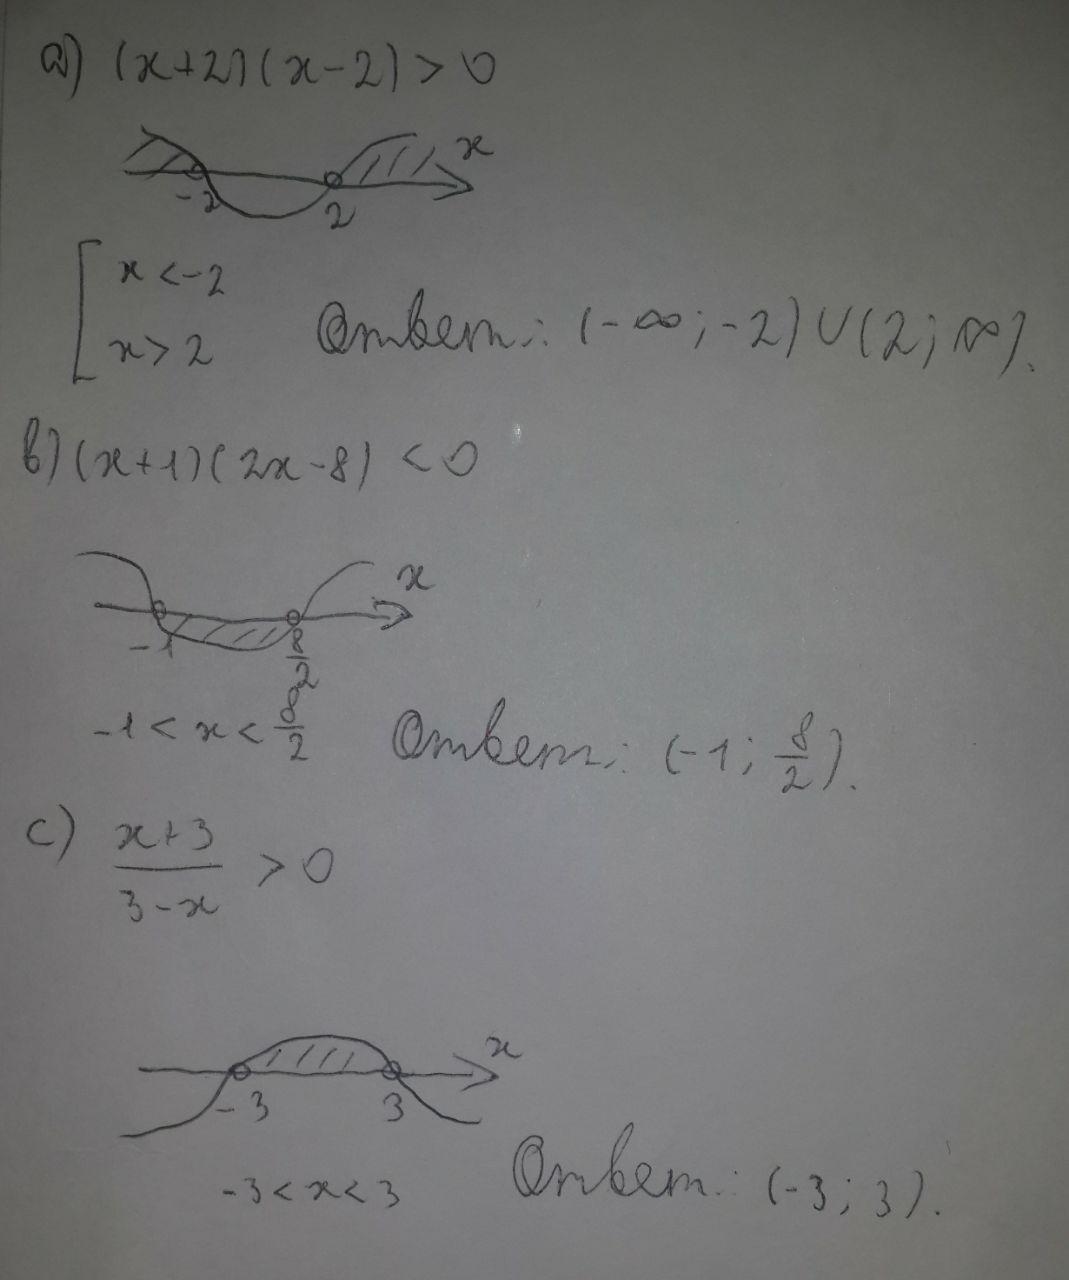 a) (x+2)(x-2) > 0
x
-2 2
x < -2
x > 2
Ответ: (-∞; -2) ∪ (2; ∞).
b) (x+1)(2x-8) < 0
x
-1 8/2
-1 < x < 8/2 Ответ: (-1; 8/2).
c) x+3 / 3-x > 0
x
-3 3
-3 < x < 3 Ответ: (-3; 3).